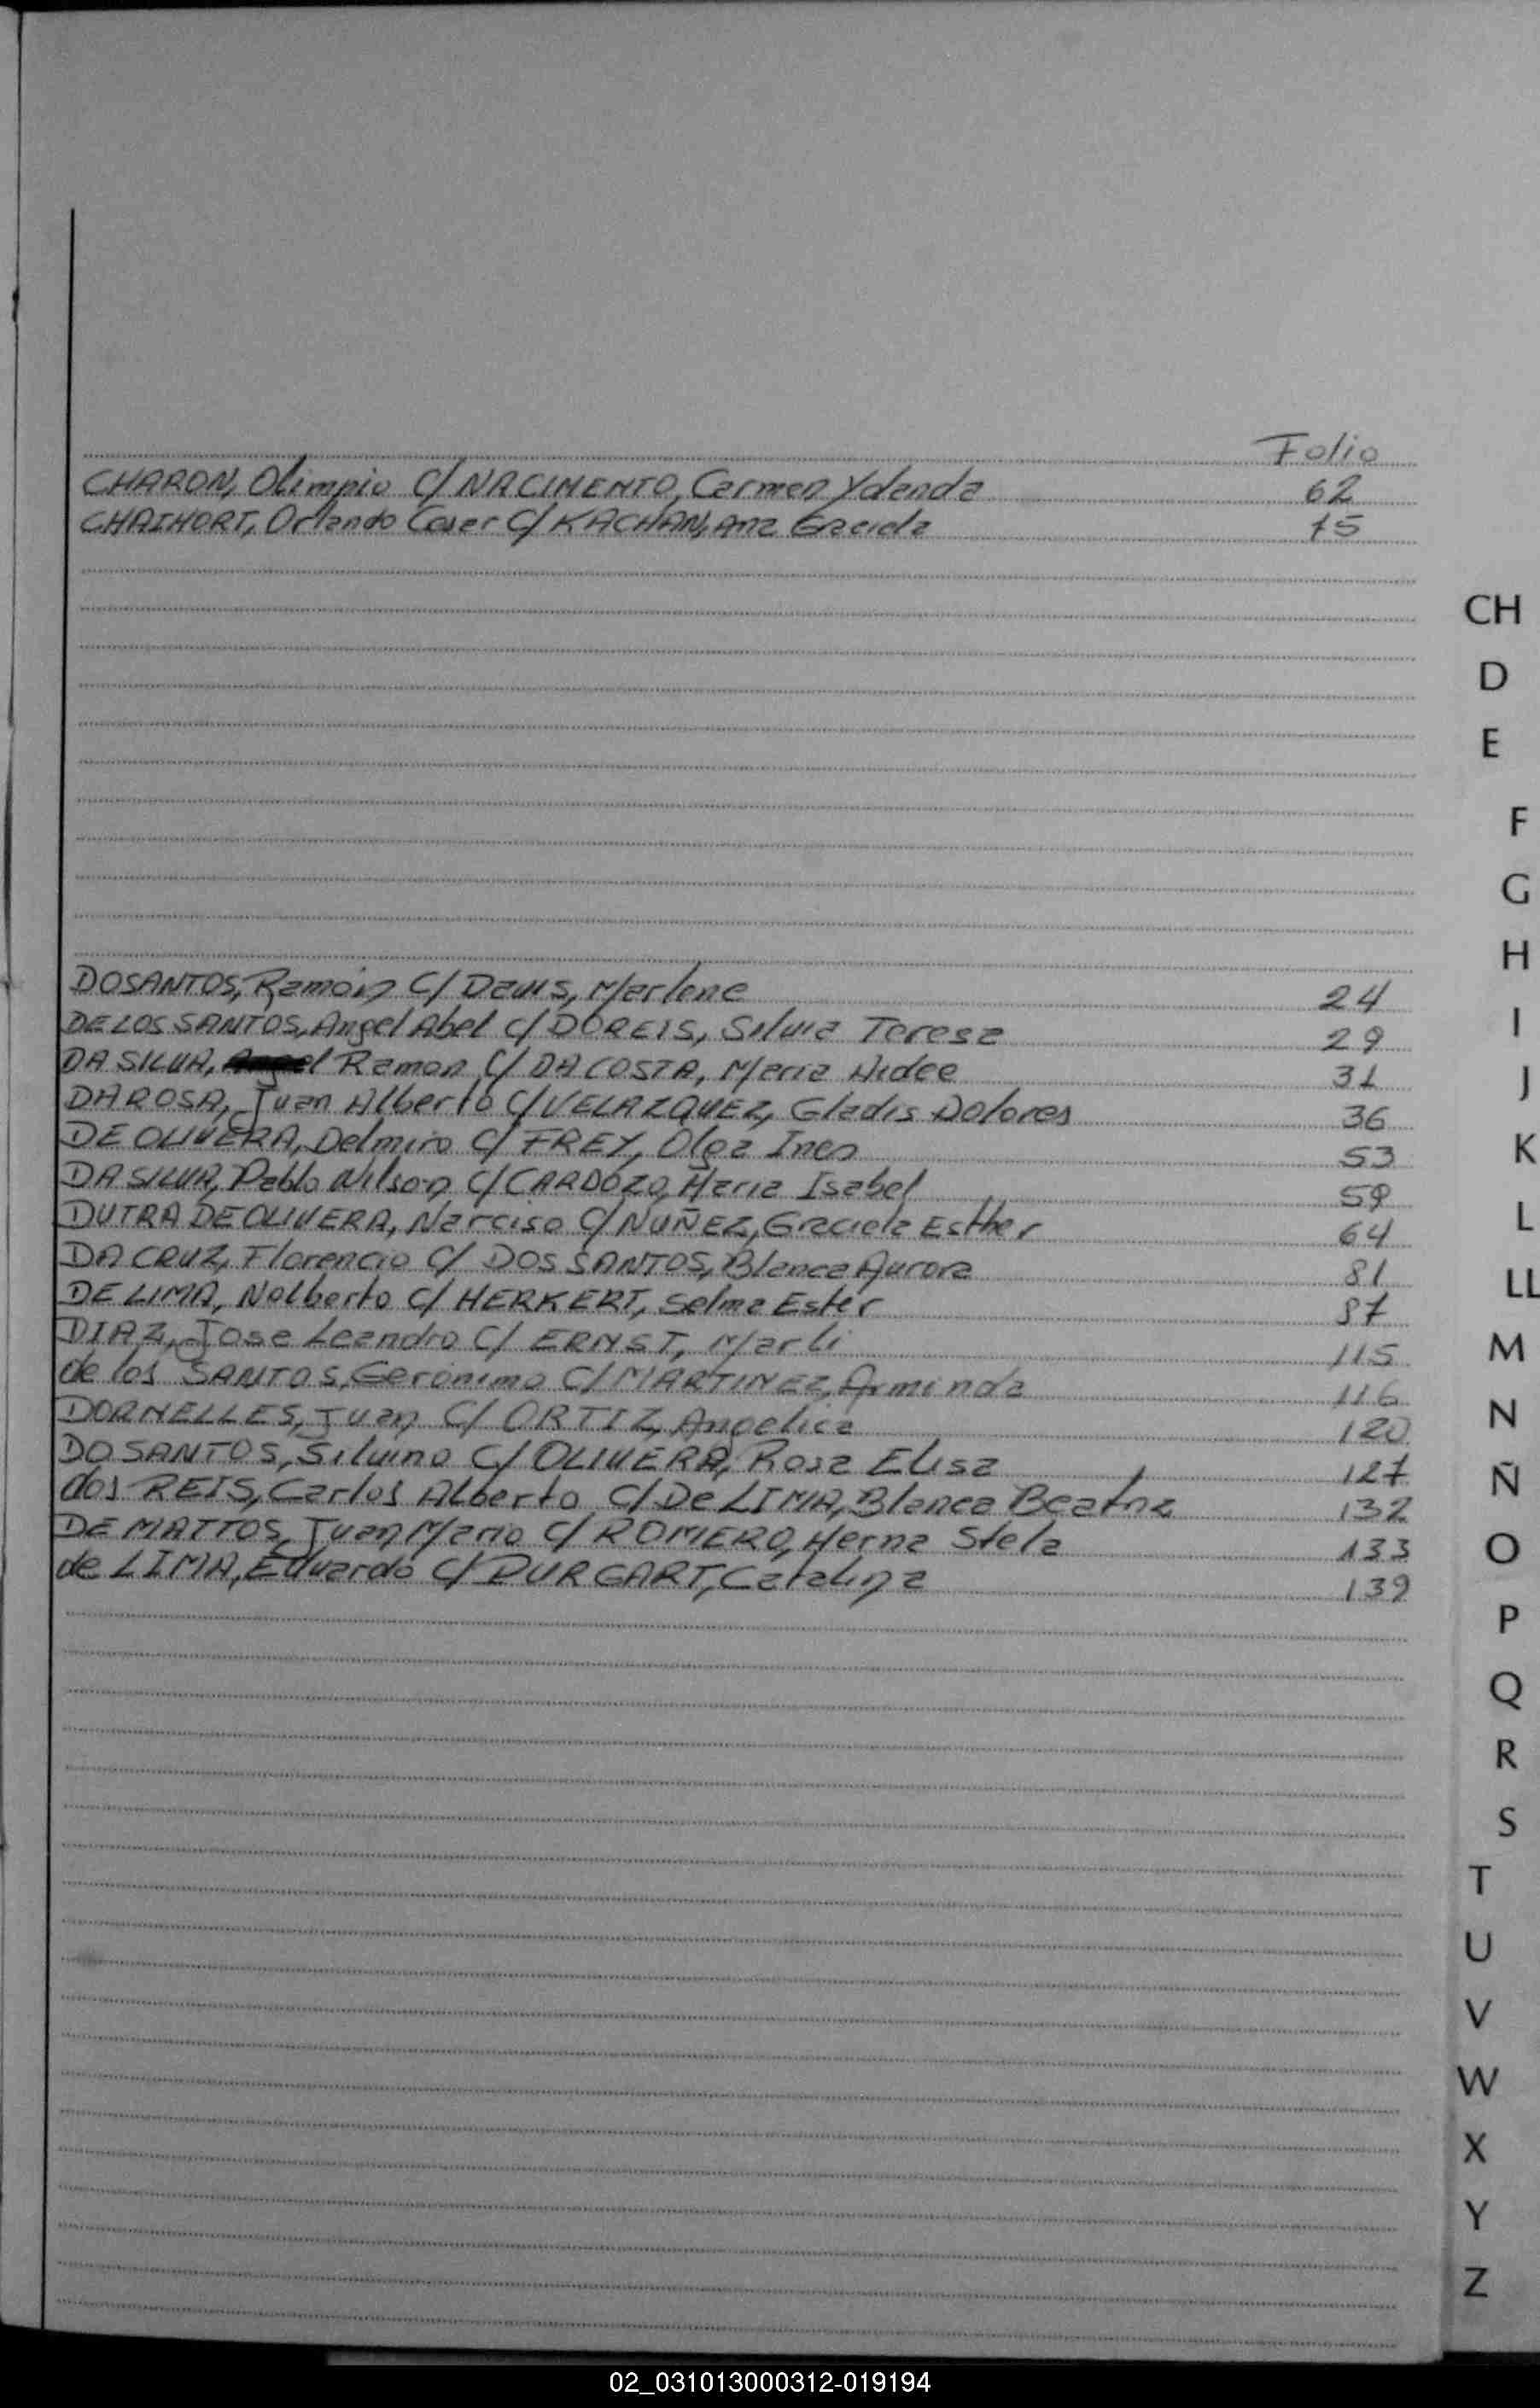 Folio
CHARON, Olimpio C/ NACIMENTO, Carmen Yolanda 62
CHAIHORT, Orlando Coser C/ KACHAN, Ana Graciela 75
CH
D
E
F
G
H
DOSANTOS, Ramón C/ Deuis, Marlene 24
DE LOS SANTOS, Angel Abel C/ DOREIS, Silvia Teresa 29
I
DA SILVA, Ramon C/ DA COSTA, Maria Hidee 31
J
DA ROSA, Juan Alberto C/ VELAZQUEZ, Gladis Dolores 36
DE OLIVERA, Delmiro C/ FREY, Olga Ines 53
K
DA SILVA, Pablo Nilson C/ CARDOZO, Maria Isabel 59
DUTRA DE OLIVERA, Narciso C/ NUÑEZ, Graciela Esther 64
L
DA CRUZ, Florencio C/ DOS SANTOS, Blanca Aurora 81
LL
DE LIMA, Nolberto C/ HERKERT, Selma Ester 87
DIAZ, Jose Leandro C/ ERNST, Marli 115
M
de los SANTOS, Geronimo C/ MARTINEZ, Arminda 116
DORNELLES, Juan C/ ORTIZ, Angelica 120
N
DOSANTOS, Siluino C/ OLIVERA, Rosa Elisa 127
Ñ
dos REIS, Carlos Alberto C/ De LIMA, Blanca Beatriz 132
DE MATTOS, Juan Mario C/ ROMERO, Herna Stela 133
O
de LIMA, Eduardo C/ DURGART, Catalina 139
P
Q
R
S
T
U
V
W
X
Y
Z
02_031013000312-019194